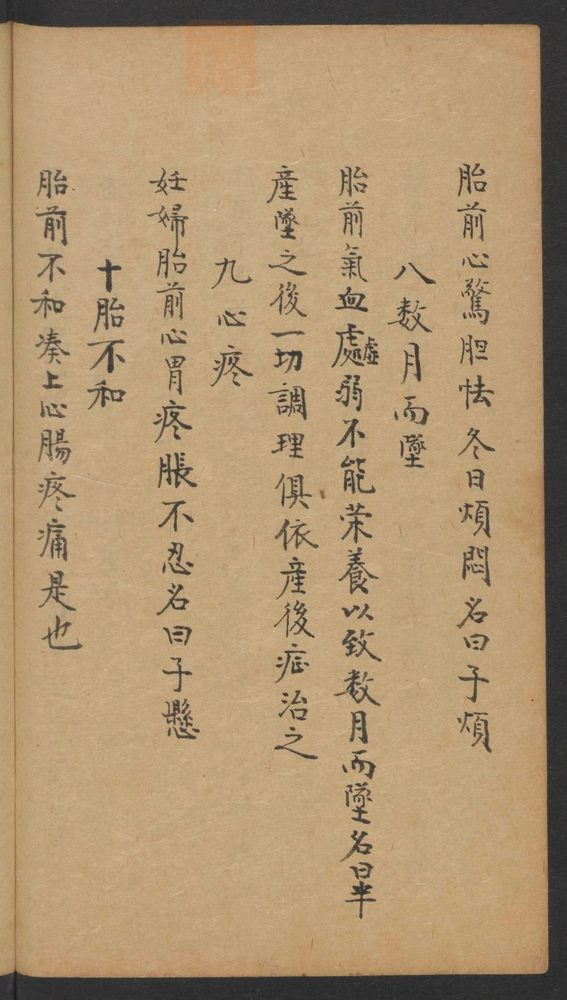 胎前心驚胆怯冬日煩悶名曰子煩
八数月而墜
胎前氣血處虛弱不能荣養以致数月而墜名曰半
産墜之後一切調理俱依産後症治之
九心疼
妊婦胎前心胃疼脹不忍名曰子懸
十胎不和
胎前不和凑上心腸疼痛是也